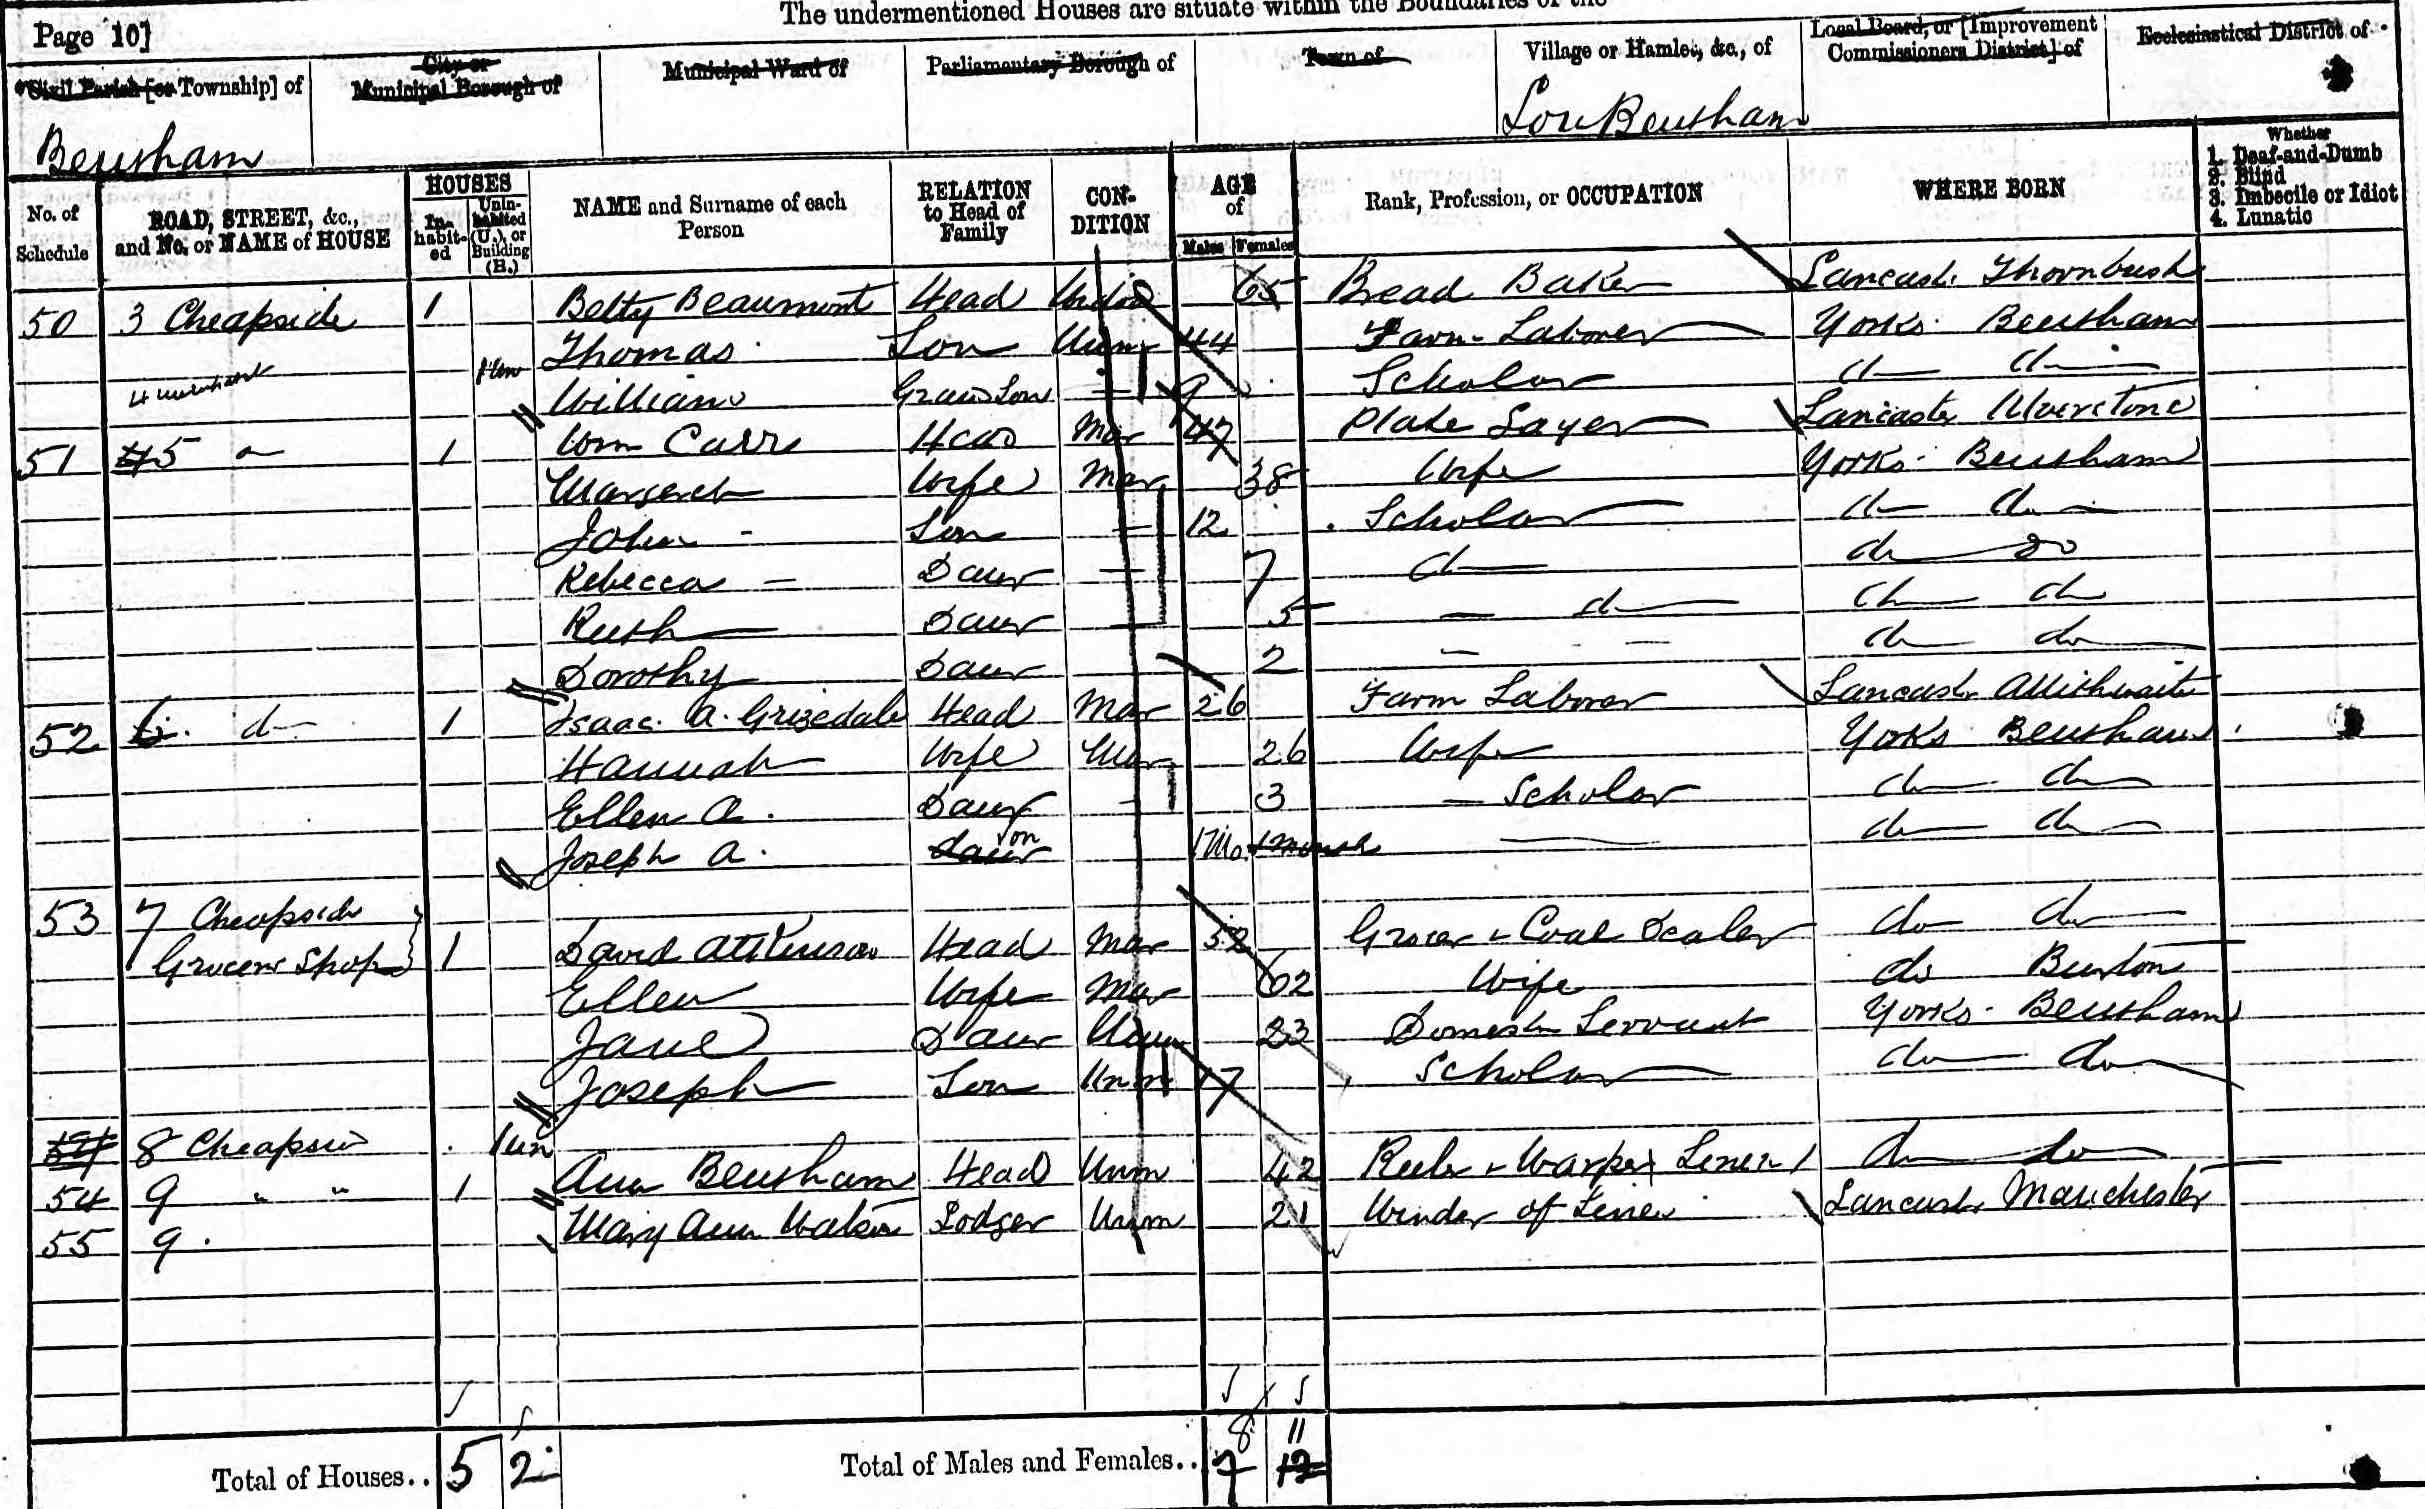 The undermentioned Houses are situate within the Boundaries of the
Page 10]
Civil Parish [or Township] of
City or Municipal Borough of
Municipal Ward of
Parliamentary Borough of
Town of
Village or Hamlet, &c., of
Local Board, or [Improvement Commissioners District] of
Ecclesiastical District of
Bentham
Low Bentham
No. of Schedule
ROAD, STREET, &c., and No. or NAME of HOUSE
HOUSES
In-habit-ed
Unin-habited (U.), or Building (B.)
NAME and Surname of each Person
RELATION to Head of Family
CON-DITION
AGE of
Males Females
Rank, Profession, or OCCUPATION
WHERE BORN
Whether
1. Deaf-and-Dumb
2. Blind
3. Imbecile or Idiot
4. Lunatic
50 3 Cheapside 1 Betty Beaumont Head 65 Bread Baker Thornbush
Thomas Son Unm 44 Farm Laborer Yorks Bentham
1un William Grand Son — 9 Scholar do do
51 5 do 1 Wm Carr Head Mar 47 Plate Layer Lancaster Ulverstone
Margaret Wife Mar 38 Wife Yorks Bentham
John - Son — 12 Scholar do do
Rebecca — Daur — 7 do do do
Ruth Daur — 5 — do do do
Dorothy Daur 2 — — do do
52 6 do 1 Isaac A. Grizedale Head Mar 26 Farm Laborer Allithwaite
Hannah Wife Mar 26 Wife Yorks Bentham
Ellen A. Daur — 3 — Scholar do do
Joseph A. Daur Son 1 Mo. 1 Month do do
53 7 Cheapside
Grocers Shop 1 David Atkinson Head Mar 52 Grocer & Coal Dealer do do
Ellen Wife Mar 62 Wife do Burton
Jane Daur Unm 23 Domestic Servant Yorks Bentham
Joseph Son Unm 17 Scholar do do
54 8 Cheapside 1un
54 9 " " 1 Ann Bentham Head Unm 42 Reeler & Warper Linen do do
55 9 Mary Ann Watson Lodger Unm 21 Winder of Linen Manchester
8 11
Total of Houses.. 5 2 Total of Males and Females.. 7 12